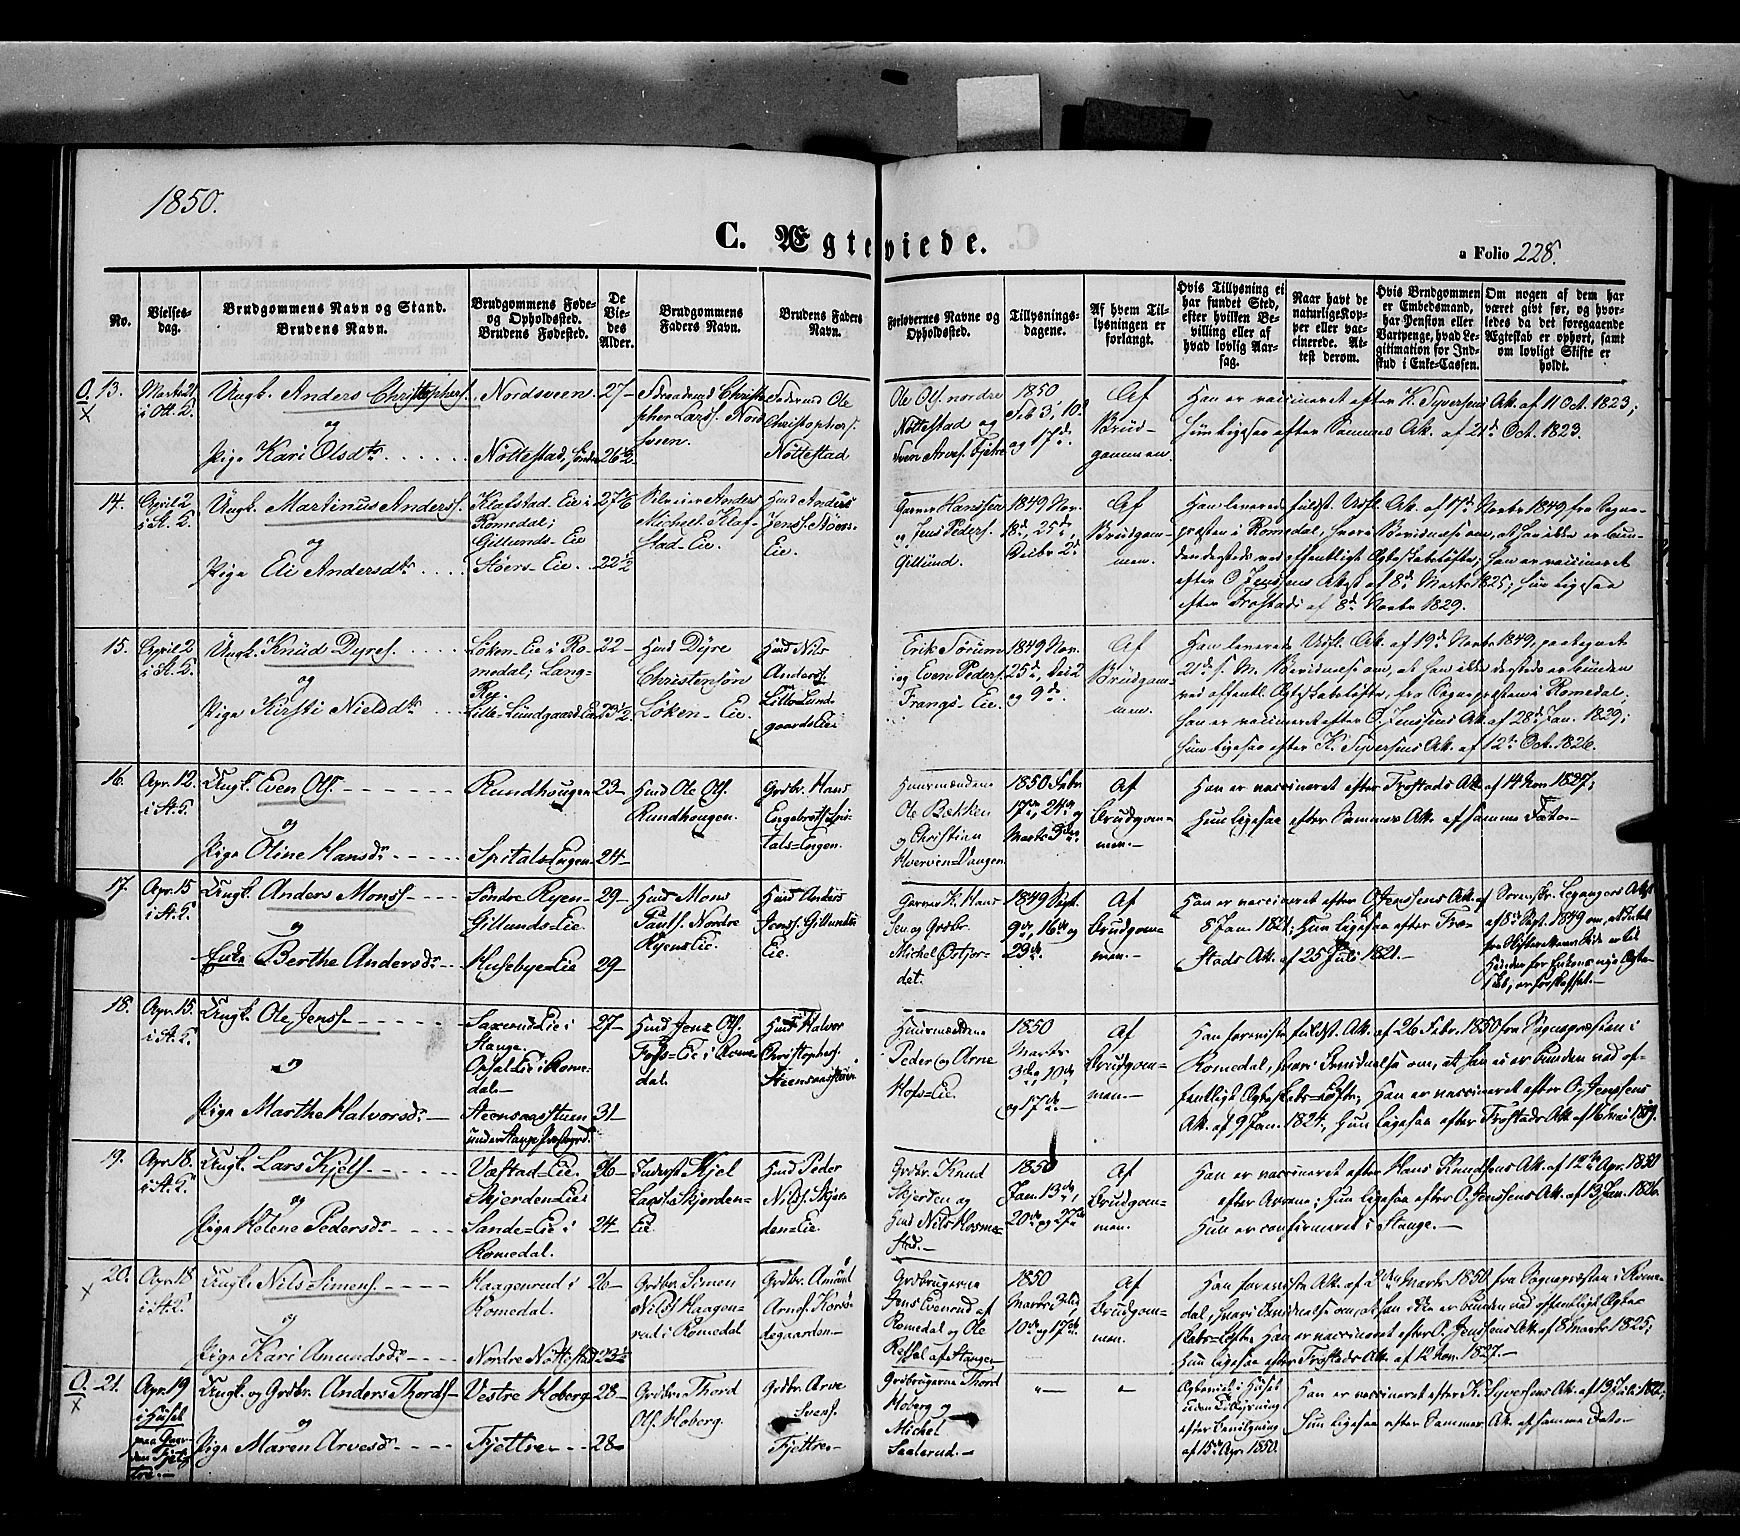 1850.
C. Ægteviede.
a Folio 228.
No.
Vielses-
dag.
Brudgommens Navn og Stand.
Brudens Navn.
Brudgommens Føde-
og Opholdsted.
Brudens Fødested.
De
Vie-
des
Alder.
Brudgommens
Faders Navn.
Brudens Faders
Navn.
Forlovernes Navne og
Opholdssted.
Tillysnings-
dagene.
Af hvem Til-
lysningen er
forlangt.
Hvis Tillysning ei
har fundet Sted,
efter hvilken Be-
villing eller af
hvad lovlig Aar-
sag.
Naar havt de
naturlige Kop-
per eller vac-
cinerede. At-
test derom.
Hvis Brudgommen
er Embedsmand,
har Pension eller
Vartpenge, hvad Le-
gitimation for Ind-
skud i Enke-Cassen.
Om nogen af dem har
været givt før, og hvor-
ledes da det foregaaende
Ægteskab er ophørt, samt
om lovligt Skifte er
holdt.
13.
Marts 21
Ungk. Anders Christophers.
og
Pige Kari Olsdtr
Nordsveen
Nöttestad, söndre
27
26½
Lars. Nord
sveen.
Ole
Christophers.
Nöttestad
Ole Ols. nordre
Nöttestad og
Sven Arves. Fjetre
1850
Feb 3, 10
og 17d.
Af
Brud-
gommen.
Han er vaccineret efter K. Syversens Att. af 11 Oct. 1823;
hun ligesaa efter Sammes Att. af 21d Oct. 1823.
14.
April 2
Ungk. Martinus Anders.
og
Pige Eli Andersdtr
Klafstad-Eie i
Romedal;
Gillunds-Eie
Stöers-Eie
22½
Anders
Michels. Klaf-
stad-Eie.
Hmd Anders
Jens. Stöers-
Eie.
Garver Hanssen
og Jens Peders.
Gillund.
1849 Nov.
18d, 25d,
Decbr 2d
Af
Brudgom-
men.
Han leverede fuldst. Udfl. Att. af 17d Novbr 1849 fra Sogne-
præsten i Romedal, hvori Bevidnelse om, at han ikke er bun-
den dersteds ved offentligt Ægteskabsløfte; han er vaccineret
efter O. Jenssens Attest af 8d Marts 1825; hun ligesaa
efter Frostads af 8d Novbr 1829.
15.
April 2
Ungk. Knud Dyres.
og
Pige Kirsti Nielsdtr
Löken-Eie i Ro-
medal; Lang-
Lille-Sundgaard Eie
22
23½
Hmd Dyre
Christensön
Löken-Eie.
Hmd Nils
Anders.
Lille Sund-
gaards Eie
Erik Sörum
og Even Peders.
Frangs-Eie.
1849 Nov.
25d, Dec 2
og 9d.
Af
Brudgom-
men.
Han leverede Udfl. Att. af 19d Novbr 1849, paategnet
21d s. M. Bevidnelse om, at han ikke dersteds er bunden
ved offentl. Ægteskabsløfte, fra Sognepræsten i Romedal.
Han er vaccineret efter O. Jenssens Att. af 28d Jan. 1829;
hun ligesaa efter K. Syversens Att. af 12te Oct. 1826.
16.
Apr. 12.
Ungk. Even Ols.
og
Pige Oline Hansdr
Rundhougen
Spitals-Engen
23
24
Hmd Ole Ols.
Rundhougen.
Grdbr. Hans
Engebrets. Spi-
tals-Engen.
Huusmændene
Ole Bækken
og Christian
Hverven-Vangen
1850 Febr
17de, 24de og
Marts 3die.
Af
Brudgom-
men.
Han er vaccineret efter Frostads Att. af 14 Nov 1827;
Hun ligesaa efter Sammes Att. af samme Dato
17.
Apr. 15
Ungk. Anders Mons.
og
Enke Berthe Andersdr
Söndre Ryen-
Gillunds-Eie.
Husebye-Eie
29
29
Hmd Mons
Pauls. Nordre
Ryens Eie.
Hmd Anders
Jens. Gillunds-
Eie.
Garver K. Hans-
sen og Grdbr.
Michel Østjor-
det.
1849 Sept.
9de, 16de og
23de.
Af
Brudgom-
men.
Han er vaccineret efter O. Jenssens Att. af
8 Jan. 1821; Hun ligesaa efter Fro-
stads Att. af 25 Juli 1821.
Sorenskr. Att.
af 8de Sept. 1849 om, at Intet
fra Skifterettens Side er til
Hinder for Enkens nye Ægte-
skab, er forskaffet.
18.
Apr. 15.
Ungk. Ole Jens.
og
Pige Marthe Halvorsdr
Saxerud Eie i
Stange.
Opsal Eie i Rome-
dal
Steensaasstuen
under Stange Præstegrd.
27
31
Hmd Jens Ols.
Foss-Eie i Rome
dal.
Hmd Halvor
Christophers.
Steensaasstuen
Huusmændene
Peder og Arne
Hofs-Eie.
1850
Marts
3die, 10de
og 17de.
Af
Brudgom-
men.
Han foreviste fuldst. Att. af 26 Febr. 1850 fra Sognepræsten i
Romedal, hvori Bevidnelse om, at han ei er bunden ved of-
fentligt Ægteskabs-Løfte; Han er vaccineret efter O. Jenssens
Att. af 9 Jan. 1824; Hun ligesaa efter Frostads Att. af 16 Mai 1819.
19.
Apr. 18.
Ungk. Lars Kjels.
og
Pige Helene Pedersdr
Væstad-Eie.
Skjerden-Eie
Sande-Eie i
Romedal.
26
24
Inderst Kjel
Lars. Skjerden-
Eie.
Hmd Peder
Nils. Skjer-
den-Eie.
Grdbr. Knud
Skjerden og
Hmd Nils Hosme-
stad.
1850
Jan. 13de,
20de og 27de
Af
Brudgom-
men.
Han er vaccineret efter Hans Knudsens Att. af 12te Apr. 1830
Hun ligesaa efter O. Jenssens Att. af 13 Jan. 1826.
Hun er confirmeret i Stange.
20.
Apr. 18
Ungk. Nils Simens.
og
Pige Kari Amundsdr
Haagenrud i
Romedal.
Nordre Nöttestad
26
23½
Grdbr. Simen
Nils. Haagen-
rud i Romedal
Grdbr. Amund
Arnes. Korsö-
degaarden
Grdbrugerne
Jens Evenrud af
Romedal og Ole
af Stange
1850
Marts 3die,
10de og 17de.
Af
Brudgom-
men.
Han foreviste Att. af 2den Marts 1850 fra Sognepræsten i Rome-
dal, hvori Bevidnelse om, at han ikke er bunden ved offentligt Ægte-
skabs-Løfte. Han er vaccineret efter O. Jenssens Att. af 8 Marts 1825;
Hun ligesaa efter Frostads Att. af 12 Nov. 1827.
21.
Apr. 19
i Huset
paa Gaar-
den Fjet-
tre.
Ungk. og Grdbr. Anders Thords.
og
Pige Maren Arvesdr
Vestre Hoberg
Fjettre
28
28
Grdbr. Thord
Ols. Hoberg.
Grdbr. Arve
Svens.
Fjettre
Grdbrugerne Thord
Hoberg og
Michel
Saalerud.
Ægteviet i Huset
uden Tillysning
efter Bevilgning
af 15de Apr. 1850.
Han er vaccineret efter K. Syversens Att. af 13 Juli 1822;
Hun ligesaa efter Sammes Att. af samme Dato